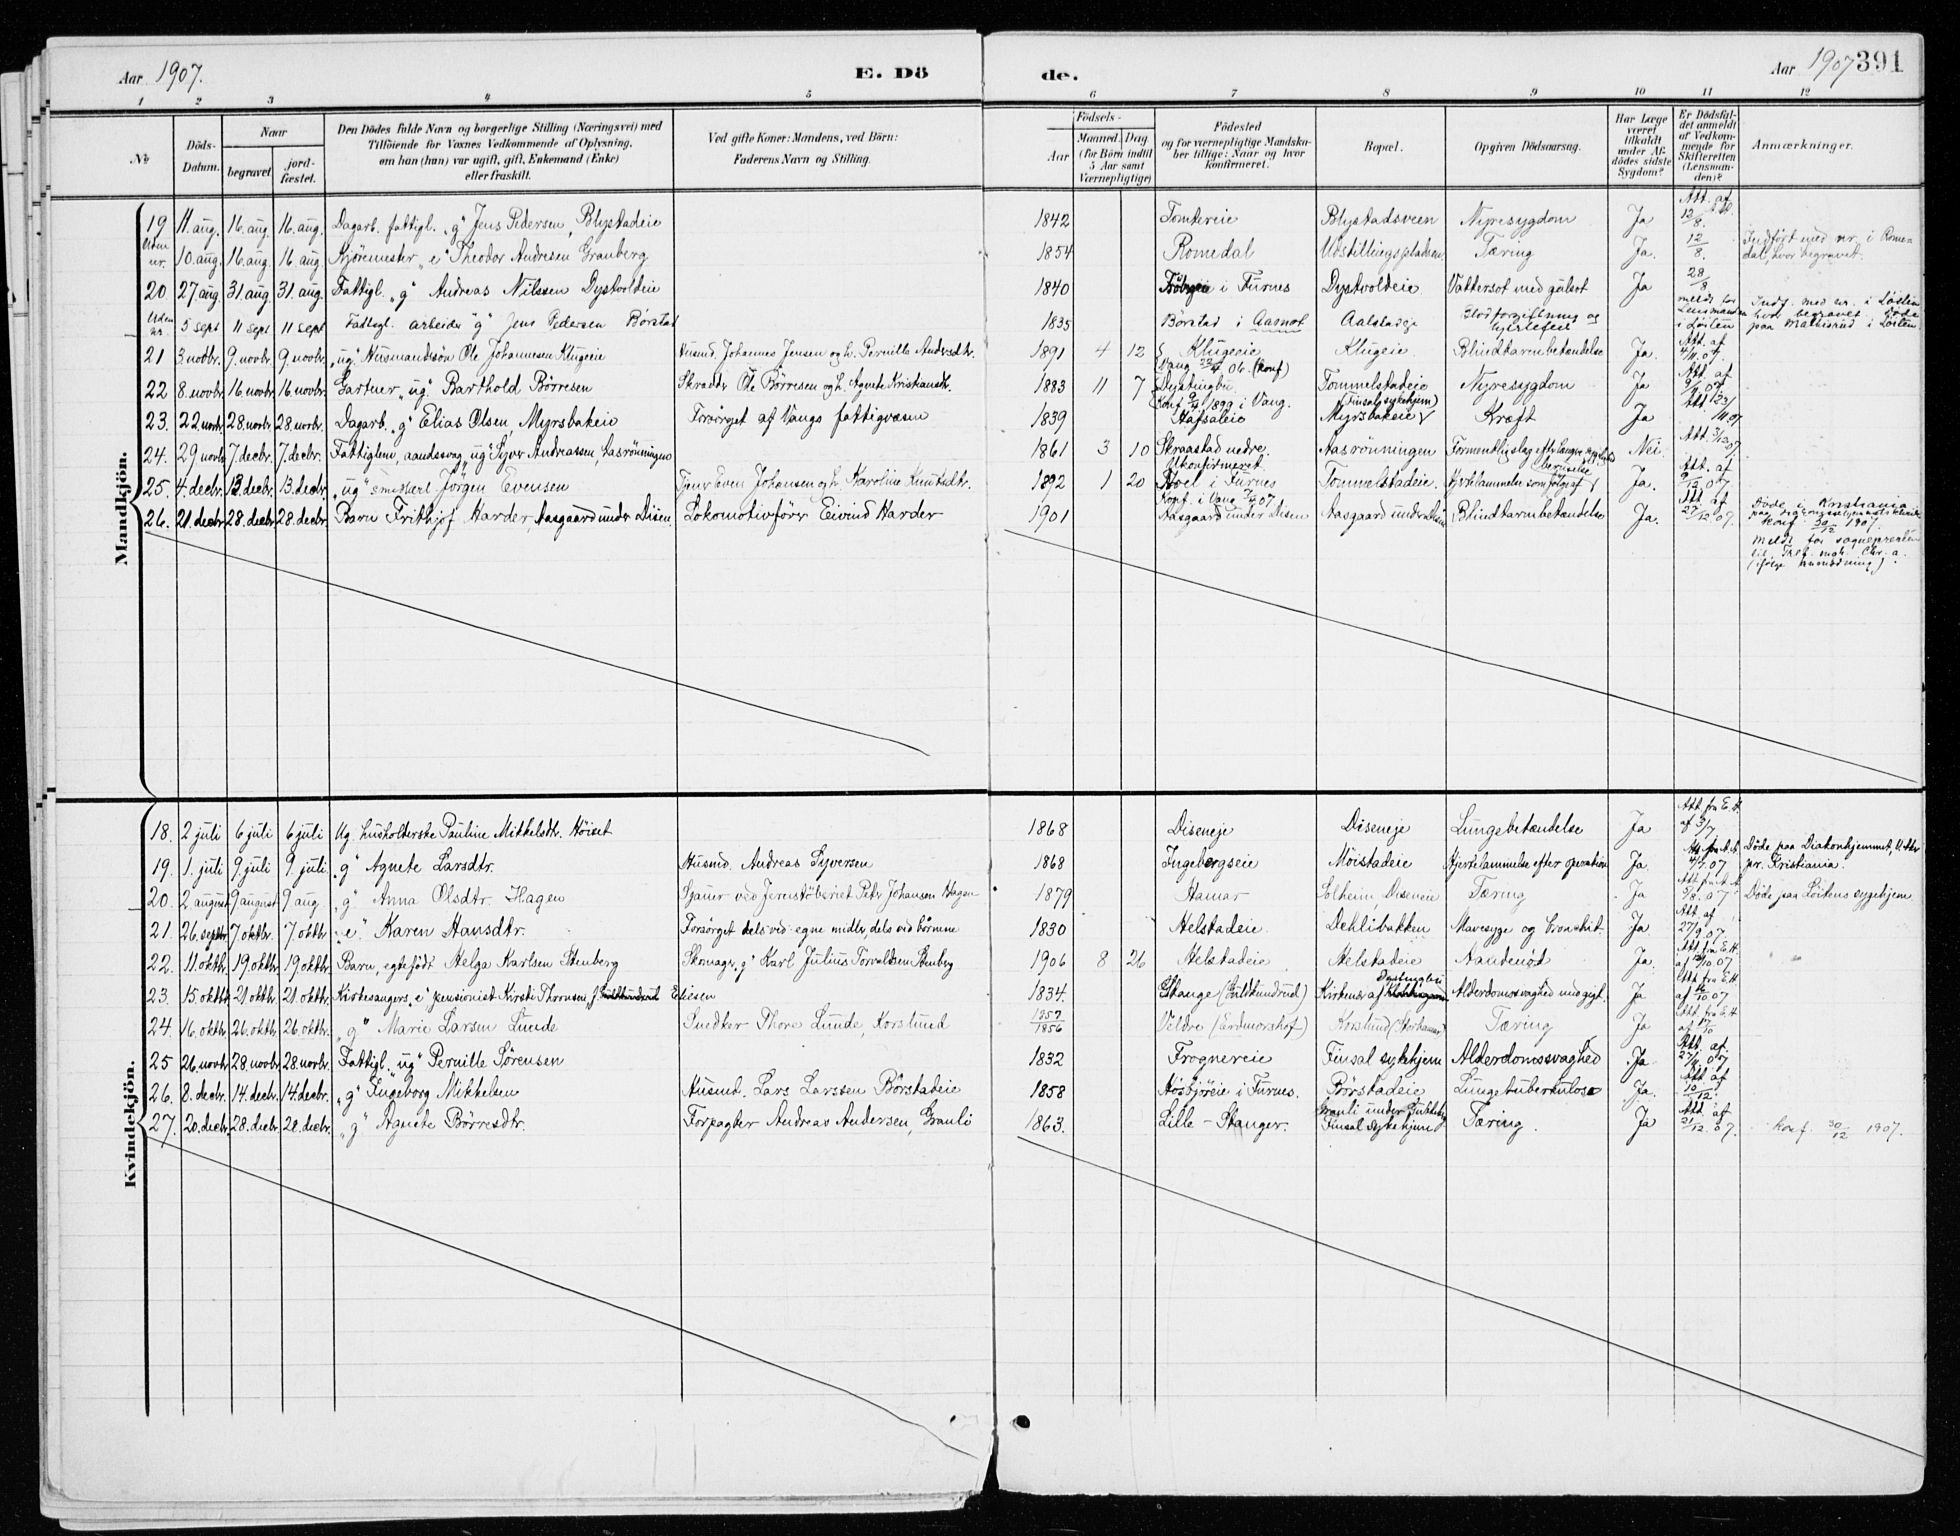 Aar 1907. E. Dö
de. Aar 1907 391
1 2 3 4 5 6 7 8 9 10 11 12
No
Döds-Datum.
Naar
begravet
jord-fæstet.
Den Dödes fulde Navn og borgerlige Stilling (Næringsvei) med
Tilföiende for Voxnes Vedkommende af Oplysning,
om han (hun) var ugift, gift, Enkemand (Enke)
eller fraskilt.
Ved gifte Koner: Mandens, ved Börn:
Faderens Navn og Stilling.
Födsels-
Aar
Maaned. Dag
(for Börn indtil
5 Aar samt
Værnepligtige)
Födested
og for værnepligtige Mandska-
ber tillige: Naar og hvor
konfirmeret.
Bopæl.
Opgiven Dödsaarsag.
Har Læge
været
tilkaldt
under Af-
dödes sidste
Sygdom?
Er Dödsfal-
det anmeldt
af Vedkom-
mende for
Skifteretten
(Lensman-
den)?
Anmærkninger.
Mandkjön.
19 11. aug. 16. aug. 16. aug. Dagarb. fattigl. "g" Jens Pedersen, Blystadeie 1842 Tomtereie Blystadsveen Nyresygdom Ja Att. af 12/8.
Uden nr. 10. aug. 16. aug. 16. aug. Kjöremester "e" Theodor Andresen Granberg 1854 Romedal Udstillingspladsen Tæring Ja. 12/8. Indfört med nr. i Rome-
dal, hvor begravet.
20 27. aug. 31. aug. 31. aug. Fattigl. "g" Andreas Nilssen Dystvoldeie 1840 i Furnes Dystvoldeie Vattersot med gulsot Ja 28/8
Uden nr. 5 sept 11 sept 11 sept Fattigl. arbeider "g" Jens Pedersen Börstad 1835 Börstad i Aasnot Aalstadeje Blodforgiftning og hjertefeil meldt for Lensmanden i Löiten Indf. med nr. i Löiten hvor begravet. Döde paa Mathisrud i Löiten.
21 3. novbr. 9. novbr. 9. novbr. "ug" Husmandssön Ole Johannesen Klugeie Husmd. Johannes Jensen og h. Pernille Andresdtr. 1891 4 12 Klugeie Vang 06. (Konf) Klugeie Blindtarmbetændelse Ja. Att. af 4/11. 07.
22 8. novbr. 16. novbr. 16. novbr. Gartner "ug" Barthold Börresen Skrædder Ole Börresen og h. Agnete Kristiansdtr. 1883 11 7 Dystingbu Konf 1899 i Vang. Tommelstadeje (Finsal sykehjem) Nyresygdom Ja Att. af 9/11 07
23. 22. novbr. 28. novbr. 28. novbr. Dagarb. "g" Elias Olsen, Myrsbakeie Forsörget af Vangs fattigvæsen 1839 Hafsaleie Myrsbakeie Kræft Ja Att. 23/11. 07.
24. 29. novbr. 7. decbr. 7. decbr. Fattiglem, aandssvag "ug" Syver Andreassen, Aasrönningen 1861 3 10 Skraastad nedre. Ukonfirmeret. Aasrönningen Formentlig slag efter længre tids beruselse Nei. Att. 3/12 07.
25. 4. decbr. 13. decbr. 13. decbr. "ug" smedkarl Jörgen Evensen Tjener Even Johansen og h. Karoline Knutsdtr. 1892 1 20 Hoel i Furnes Konf. i Vang 07 Tommelstadeie. Hjertelammelse som fölge af Ja. Att. af 9/12. 07.
26. 21. decbr. 28. decbr. 28. decbr. Barn Frithjof Harder, Aasgaard under Disen Lokomotivförer Eivind Harder 1901 Aasgaard under Disen Aasgaard under Disen Blindtarmbetændelse Ja. Att af 27/12 07. Döde i Kristiania
Konf. 30/12 1907.
Meldt for sognepræsten
(ifölge anmeldning).
Kvindekjön.
18. 2 juli 6 juli 6 juli Ug. husholderske Pauline Mikkelsdtr. Höiset 1868 Diseneje Diseneje Lungebetændelse Ja Att. fra E. H. af 3/7
19. 1. juli 9. juli 9. juli "g" Agnete Larsdtr. Husmd. Andreas Syversen 1868 Ingebergseie Möistadeie Hjertelammelse efter operation Ja. 4/7. 07 Döde paa Diakonhjemmet, V. Aker pr. Kristiania.
20. 2 august 9 august 9 aug. "g" Anna Olsdtr. Hagen Sjauer ved Jernstöberiet Peter Johansen Hagen 1879 Hamar Solheim, Diseneie Tæring Ja 5/8. 07 Döde paa Löitens sygehjem
21. 26. septbr. 7. oktbr. 7. oktbr. "e" Karen Hansdtr. Forsörget dels ved egne midler, dels ved börnene 1830 Helstadeie. Dehlibakken Mavesyge og bronkit. Ja Att. af 27/9. 07.
22. 11. oktbr. 19. oktbr. 19. oktbr. Barn, egtefödt Helga Karlsen Stenberg Skomager "g" Karl Julius Torvaldsen Stenberg 1906 8 26 Helstadeie Helstadeie Aandenöd Ja. Att. fra E. H. af 12/10 07
23. 15. oktbr. 21 oktbr. 21 oktbr. Kirkesangers "e" pensionist Kirsti Thomsen, f. Eliesen 1834. Stange (Guldhundrud) Kirkener af Alderdomssvaghed med gigt. Ja Att. fra E. H. af 16/10 07
24. 16. oktbr. 26. oktbr. 26. oktbr. "g" Marie Larsen Lunde Snedker Thore Lunde, Korslund 1857 1856 Veldre (Erdmorshof) Korslund (Storhamar) Tæring Ja Att. fra E. H. af 17/10
25 26. novbr. 28. novbr. 28. novbr. Fattigl. "ug" Pernille Sörensen 1832 Frognereie Finsal sykehjem Alderdomssvaghed Ja. Att. af. 27/11 07
26. 8. decbr. 14. decbr. 14. decbr. "g" Ingeborg Mikkelsen Husmd. Lars Larssen Börstadeie 1858 Hösbjöreie i Furnes. Börstadeie Lungetuberkulose Ja. Att af 10/12.
27. 20. decbr. 28. decbr. 28. decbr. "g" Agnete Börresdtr. Forpagter Andreas Andersen, Granli 1863. Lille-Stanger. Granli under Finsal Sykehjem Tæring. Ja Att. af 21/12. 07. Konf. 30/12 1907.